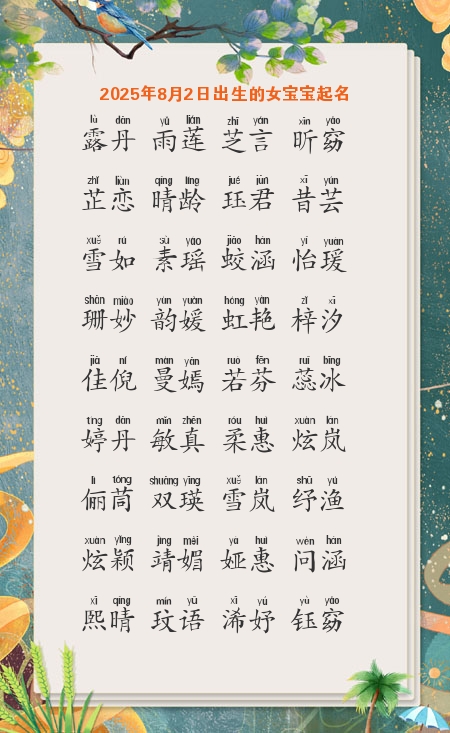 2025年8月2日出生的女宝宝起名
lù dān yǔ lián zhī yán xīn yǎo
露丹 雨莲 芝言 昕窈
zhǐ liàn qíng líng jué jūn xī yún
芷恋 晴龄 珏君 昔芸
xuě rú sù yáo jiāo hán yí yuàn
雪如 素瑶 蛟涵 怡瑗
shān miào yùn yuàn hóng yàn zǐ xī
珊妙 韵媛 虹艳 梓汐
jiā ní màn yān ruò fēn ruǐ bīng
佳倪 曼嫣 若芬 蕊冰
tíng dān mǐn zhēn róu huì xuàn lán
婷丹 敏真 柔惠 炫岚
lì tóng shuāng yīng xuě lán shū yú
俪茼 双瑛 雪岚 纾渔
xuàn yǐng jìng mèi yà huì wèn hán
炫颖 靖媚 娅惠 问涵
xī qíng mín yǔ xī yú yù yǎo
熙晴 玟语 浠妤 钰窈